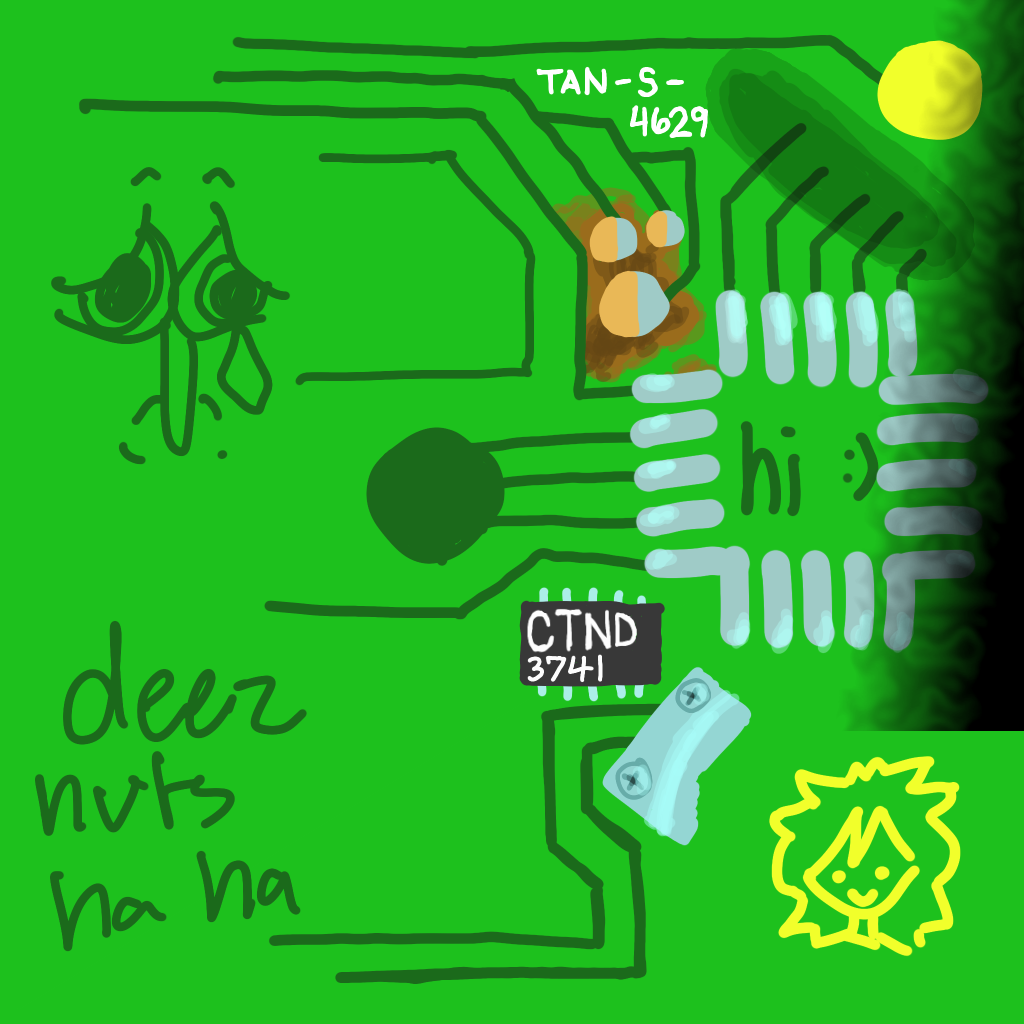 TAN-S-
4629
hi :)
CTND
3741
deez
nuts
ha ha